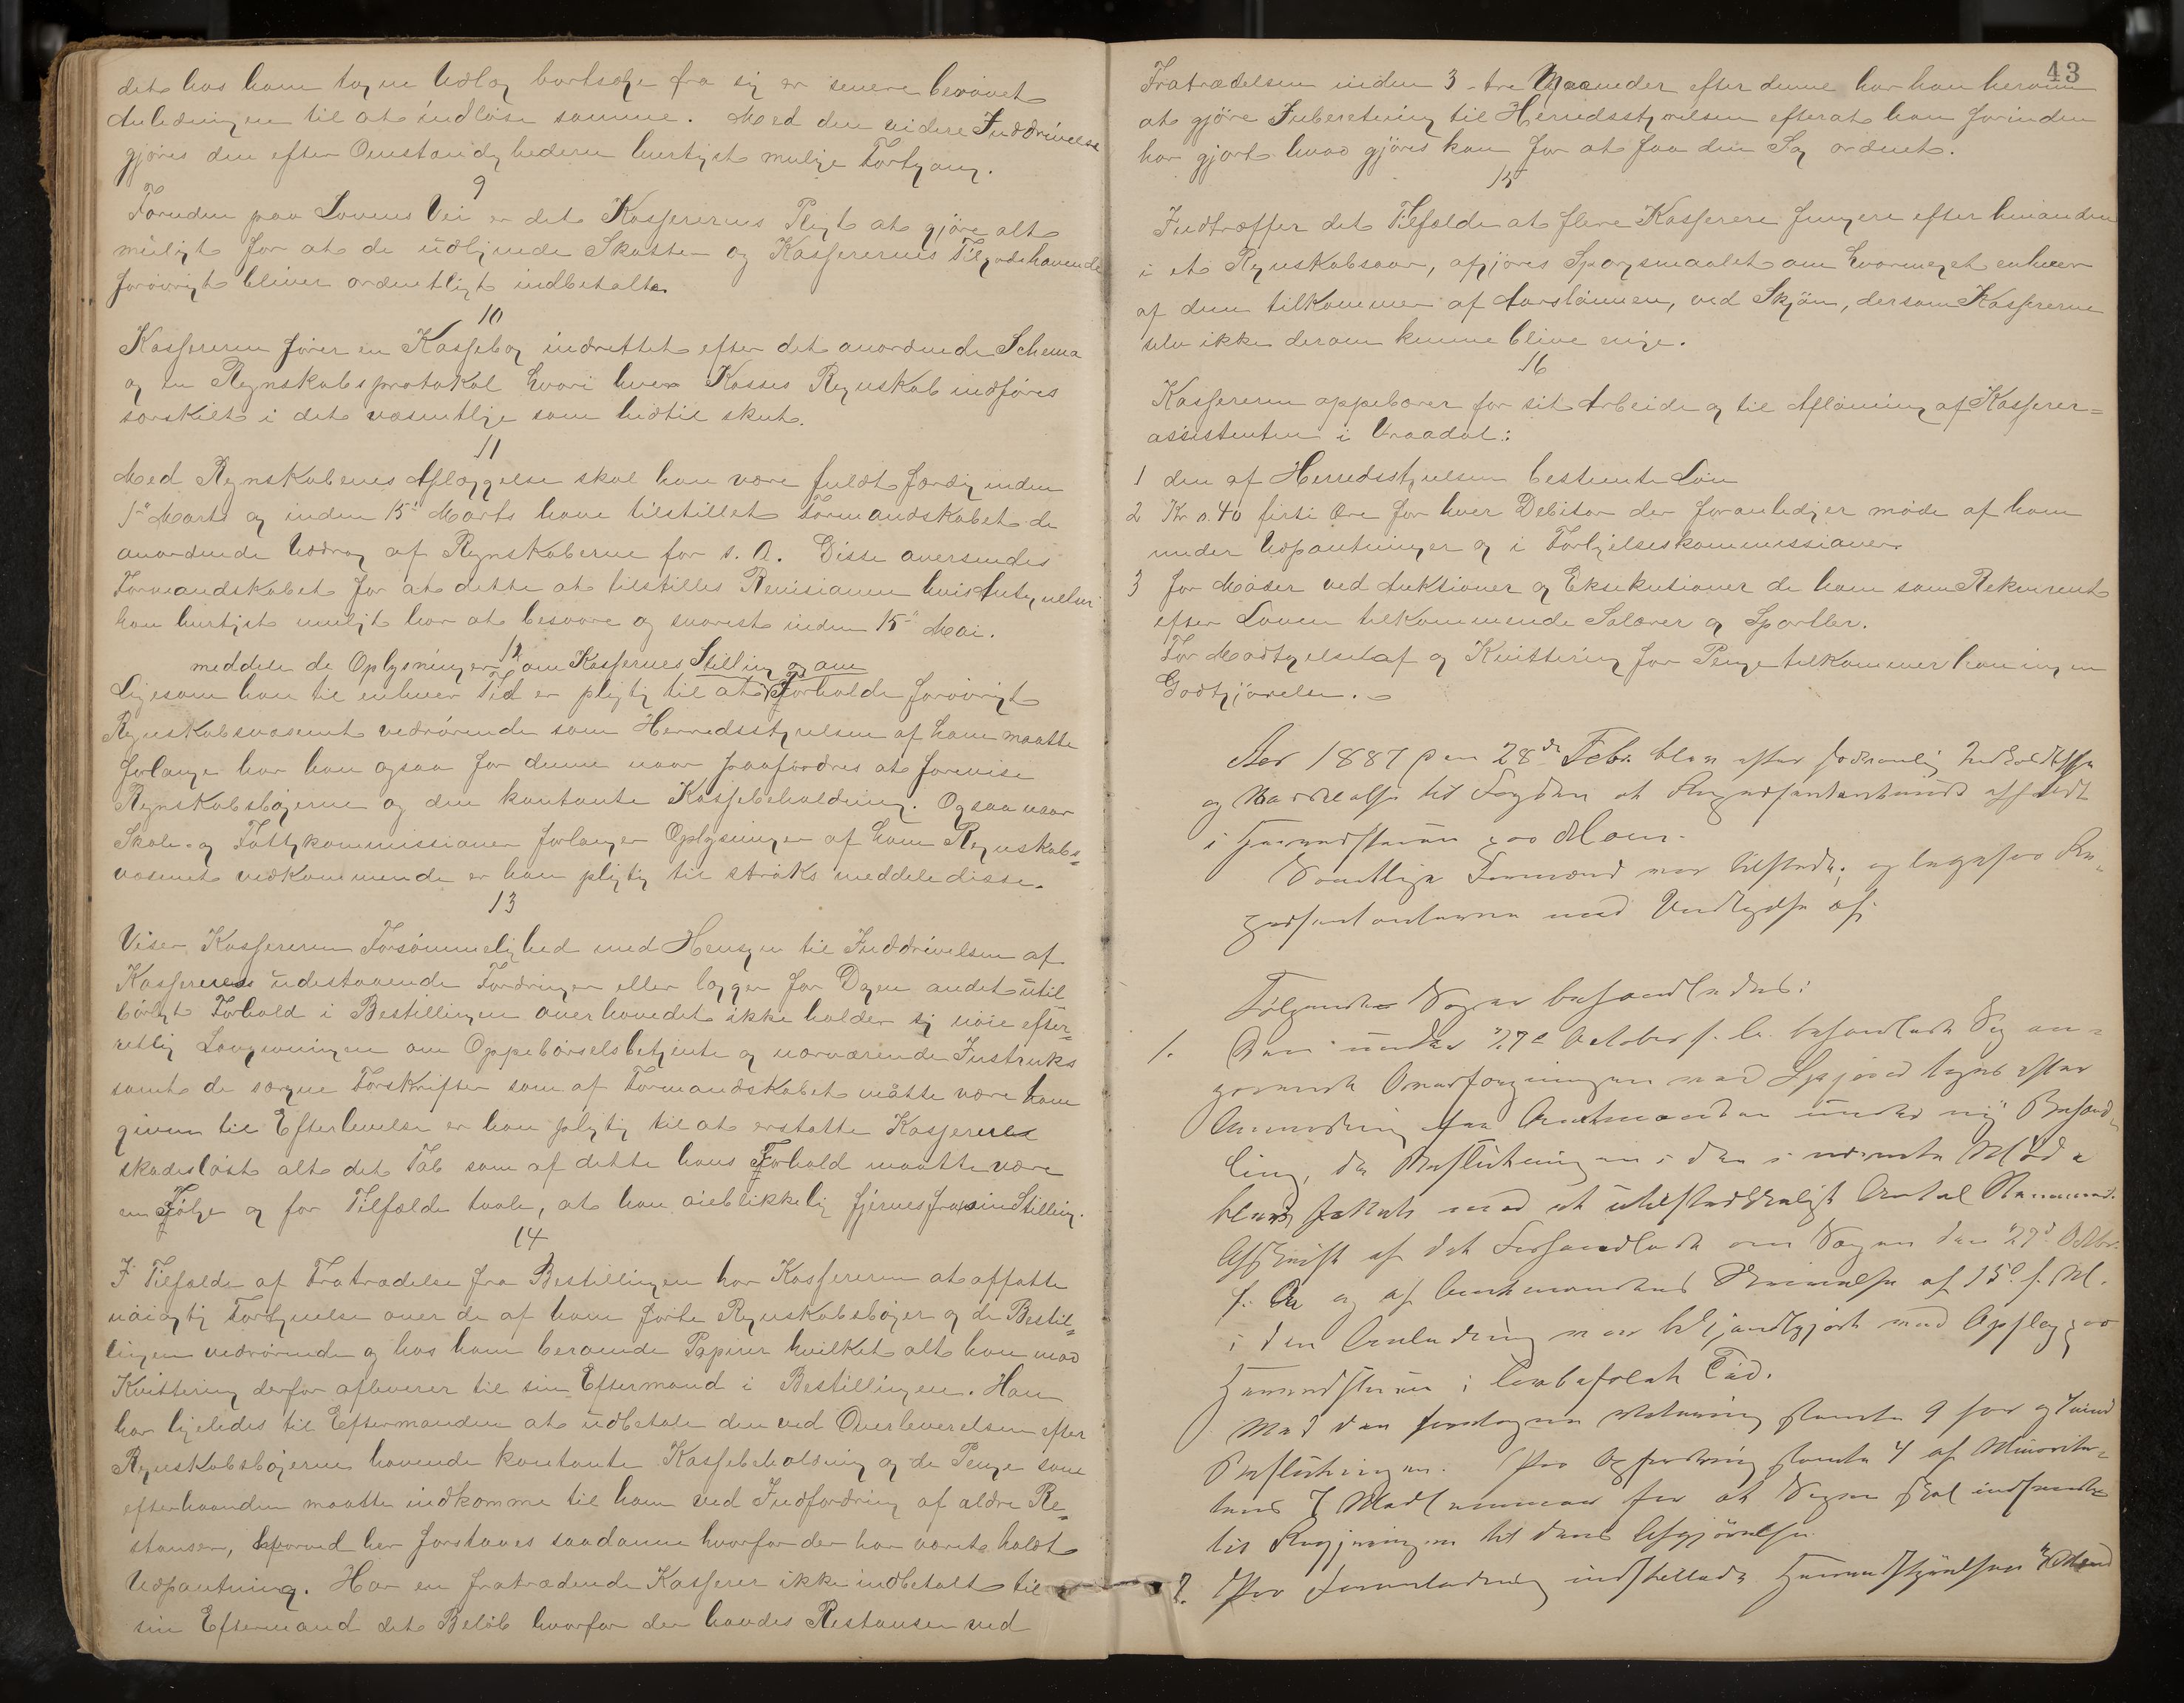 det hos ham tagne Udlæg bortsælge fra sig er senere berøvet
Anledningen til at indløse samme. Med den videre Inddrivelse
gjøres den efter Omstændighederne hurtigst mulige Fortgang.
9
Foruden paa Lovens Vei er det Kassererens Pligt at gjøre alt
muligt for at de udlignede Skatter og Kassererens Tilgodehavende
forøvrigt bliver ordentligt indbetalte.
10
Kassereren fører en Kassebog indrettet efter det anordnede Schema
og en Regnskabsprotokol hvori hver Kasses Regnskab indføres
særskilt i det væsentlige som hidtil skeet.
11
Med Regnskabenes Aflæggelse skal han være fuldt færdig inden
1ste Marts og inden 15de Marts have tilstillet Formandskabet de
anordnede Uddrag af Regnskaberne for s. A. Disse oversendes
Formandskabet for at dette at tilstilles Revisionen hvis Antegnelser
han hurtigst muligt har at besvare og senest inden 15de Mai.
12
meddele de Oplysninger om Kassernes Stilling og om
Ligesom han til enhver Tid er pligtig til at Forholde forøvrigt
Regnskabsvæsenet vedrørende som Herredsstyrelsen af ham maatte
forlange har han ogsaa for denne naar paafordres at forevise
Regnskabsbøgerne og den kontante Kassebeholdning. Ogsaa naar
Skole- og Fattigkommissioner forlanger Oplysninger af ham Regnskabs-
væsenet vedkommende er han pligtig til straks meddele disse.
13
Viser Kassereren Forsømmelighed med Hensyn til Inddrivelsen af
Kassernes udestaaende Fordringer eller lægger for Dagen andet util-
børligt Forhold i Bestillingen overhovedet ikke holder sig nøie efter-
rettelig Lovgivningen om Oppebørselsbetjente og nærværende Instruks
samt de særegne Forskrifter som af Formandskabet måtte være ham
given til Efterlevelse er han pligtig til at erstatte Kasserne
skadesløst alt det Tab som af dette hans Forhold maatte være
en Følge og for Tilfælde taale, at han øieblikkelig fjernes fra sin Stilling.
14
I Tilfælde af Fratrædelse fra Bestillingen har Kassereren at affatte
nøiagtig Fortegnelse over de af ham førte Regnskabsbøger og de Bestil-
lingen vedrørende og hos ham beroende Papirer hvilket alt han mod
Kvittering derfor afleverer til sin Eftermand i Bestillingen. Han
har ligeledes til Eftermanden at udbetale den ved Overleverelsen efter
Regnskabsbøgerne havende kontante Kassebeholdning og de Penge som
efterhaanden maatte indkomme til ham ved Indfordring af ældre Re-
stanser, hvorved her forstaaes saadanne hvorfor der har været holdt
Udpantning. Har en fratrædende Kasserer ikke indbetalt til
sin Eftermand det Beløb hvorfor der havdes Restanser ved
43
Fratrædelsen inden 3 - tre Maaneder efter denne har han herom
at gjøre Indberetning til Herredsstyrelsen efterat han forinden
har gjort hvad gjøres kan for at faa den Sag ordnet.
15
Indtræffer det Tilfælde at flere Kasserere fungere efter hinanden
i et Regnskabsaar, afgjøres Spørgsmaalet om hvormeget enhver
af dem tilkommer af Aarslønnen, ved Skjøn, dersom Kassererne
selv ikke derom kunne blive enige.
16
Kassereren oppebærer for sit Arbeide og til Aflønning af Kasserer-
assistenten i Vraadal:
1 den af Herredsstyrelsen bestemte Løn
2 Kr 0.40 firti Øre for hver Debitor der foranlediger møde af ham
under Udpantninger og i Forligelseskommissioner.
3 for Møder ved Auktioner og Eksekutioner de ham som Rekvirent
efter Loven tilkommende Salærer og Sportler.
For Modtagelse af og Kvittering for Penge tilkommer han ingen
Godtgjørelse.
Aar 1887 den 28de Febr. blev efter sædvanlig Indkaldelse
og Meddelelse til Fogden et Repræsentantmøde afholdt
i Herredsstuen paa Moen.
Samtlige Formænd var tilstede; og ligesaa Re-
præsentanterne med Undtagelse af
Følgende Sager behandledes:
1. Den under 27de October f. A. behandlede Sag an-
gaaende Overfærgningen ved Spjoed toges efter
Anmodning fra Amtmanden under ny Behand-
ling, da Beslutningen i den i nævnte Møde
blev fattet med et utilstrækkeligt Antal Stemmer.
Afskrift af det Forhandlede om Sagen den 27de Octbr.
f. A. og af Amtmandens Skrivelse af 15de f. M.
i den Anledning var bekjendtgjort med Opslag paa
Herredsstuen i lovbefalet Tid.
Med den foretagne Votering stemte 9 for og 7 imod
Beslutningen. Paa Opfordring stemte 4 af Minorite-
tens 7 Medlemmer for at Sagen skal indsendes
til Regjeringen til dens Afgjørelse.
2. Paa Foranledning indstillede Herredsstyrelsen